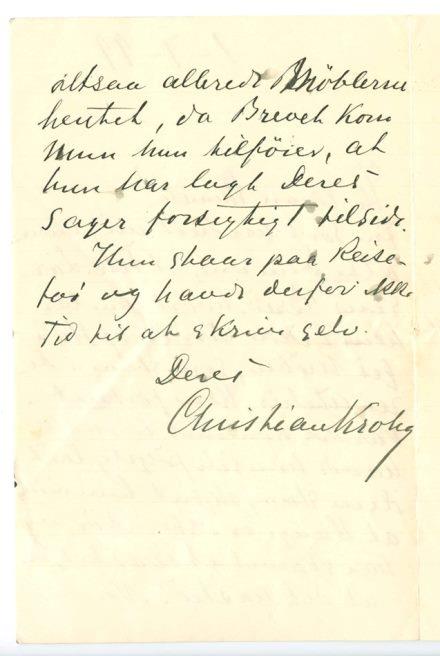 altsaa allerede Møblerne
hentet, da Brevet kom
Men hun tilføier, at
hun har lagt Deres
Sager forsigtigt tilside.
Hun staar paa Reise-
fod og havde derfor ikke
Tid til at skrive selv.
Deres
Christian Krohg